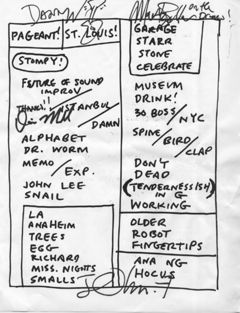 PAGEANT! ST. LOUIS!
STOMPY!
FUTURE OF SOUND
IMPROV/
ISTANBUL
DAMN
ALPHABET
DR. WORM
MEMO/EXP.
JOHN LEE
SNAIL
LA
ANAHEIM
TREES
EGG
RICHARD
MISS. NIGHTS
SMALLS
GARAGE
STARR
STONE
CELEBRATE
MUSEUM
DRINK!
30 BOSS/NYC
SPINE/BIRD/CLAP
DON'T
DEAD
(TENDERNESS/SH)
IN G
WORKING
OLDER
ROBOT
FINGERTIPS
ANA NG
HOCUS